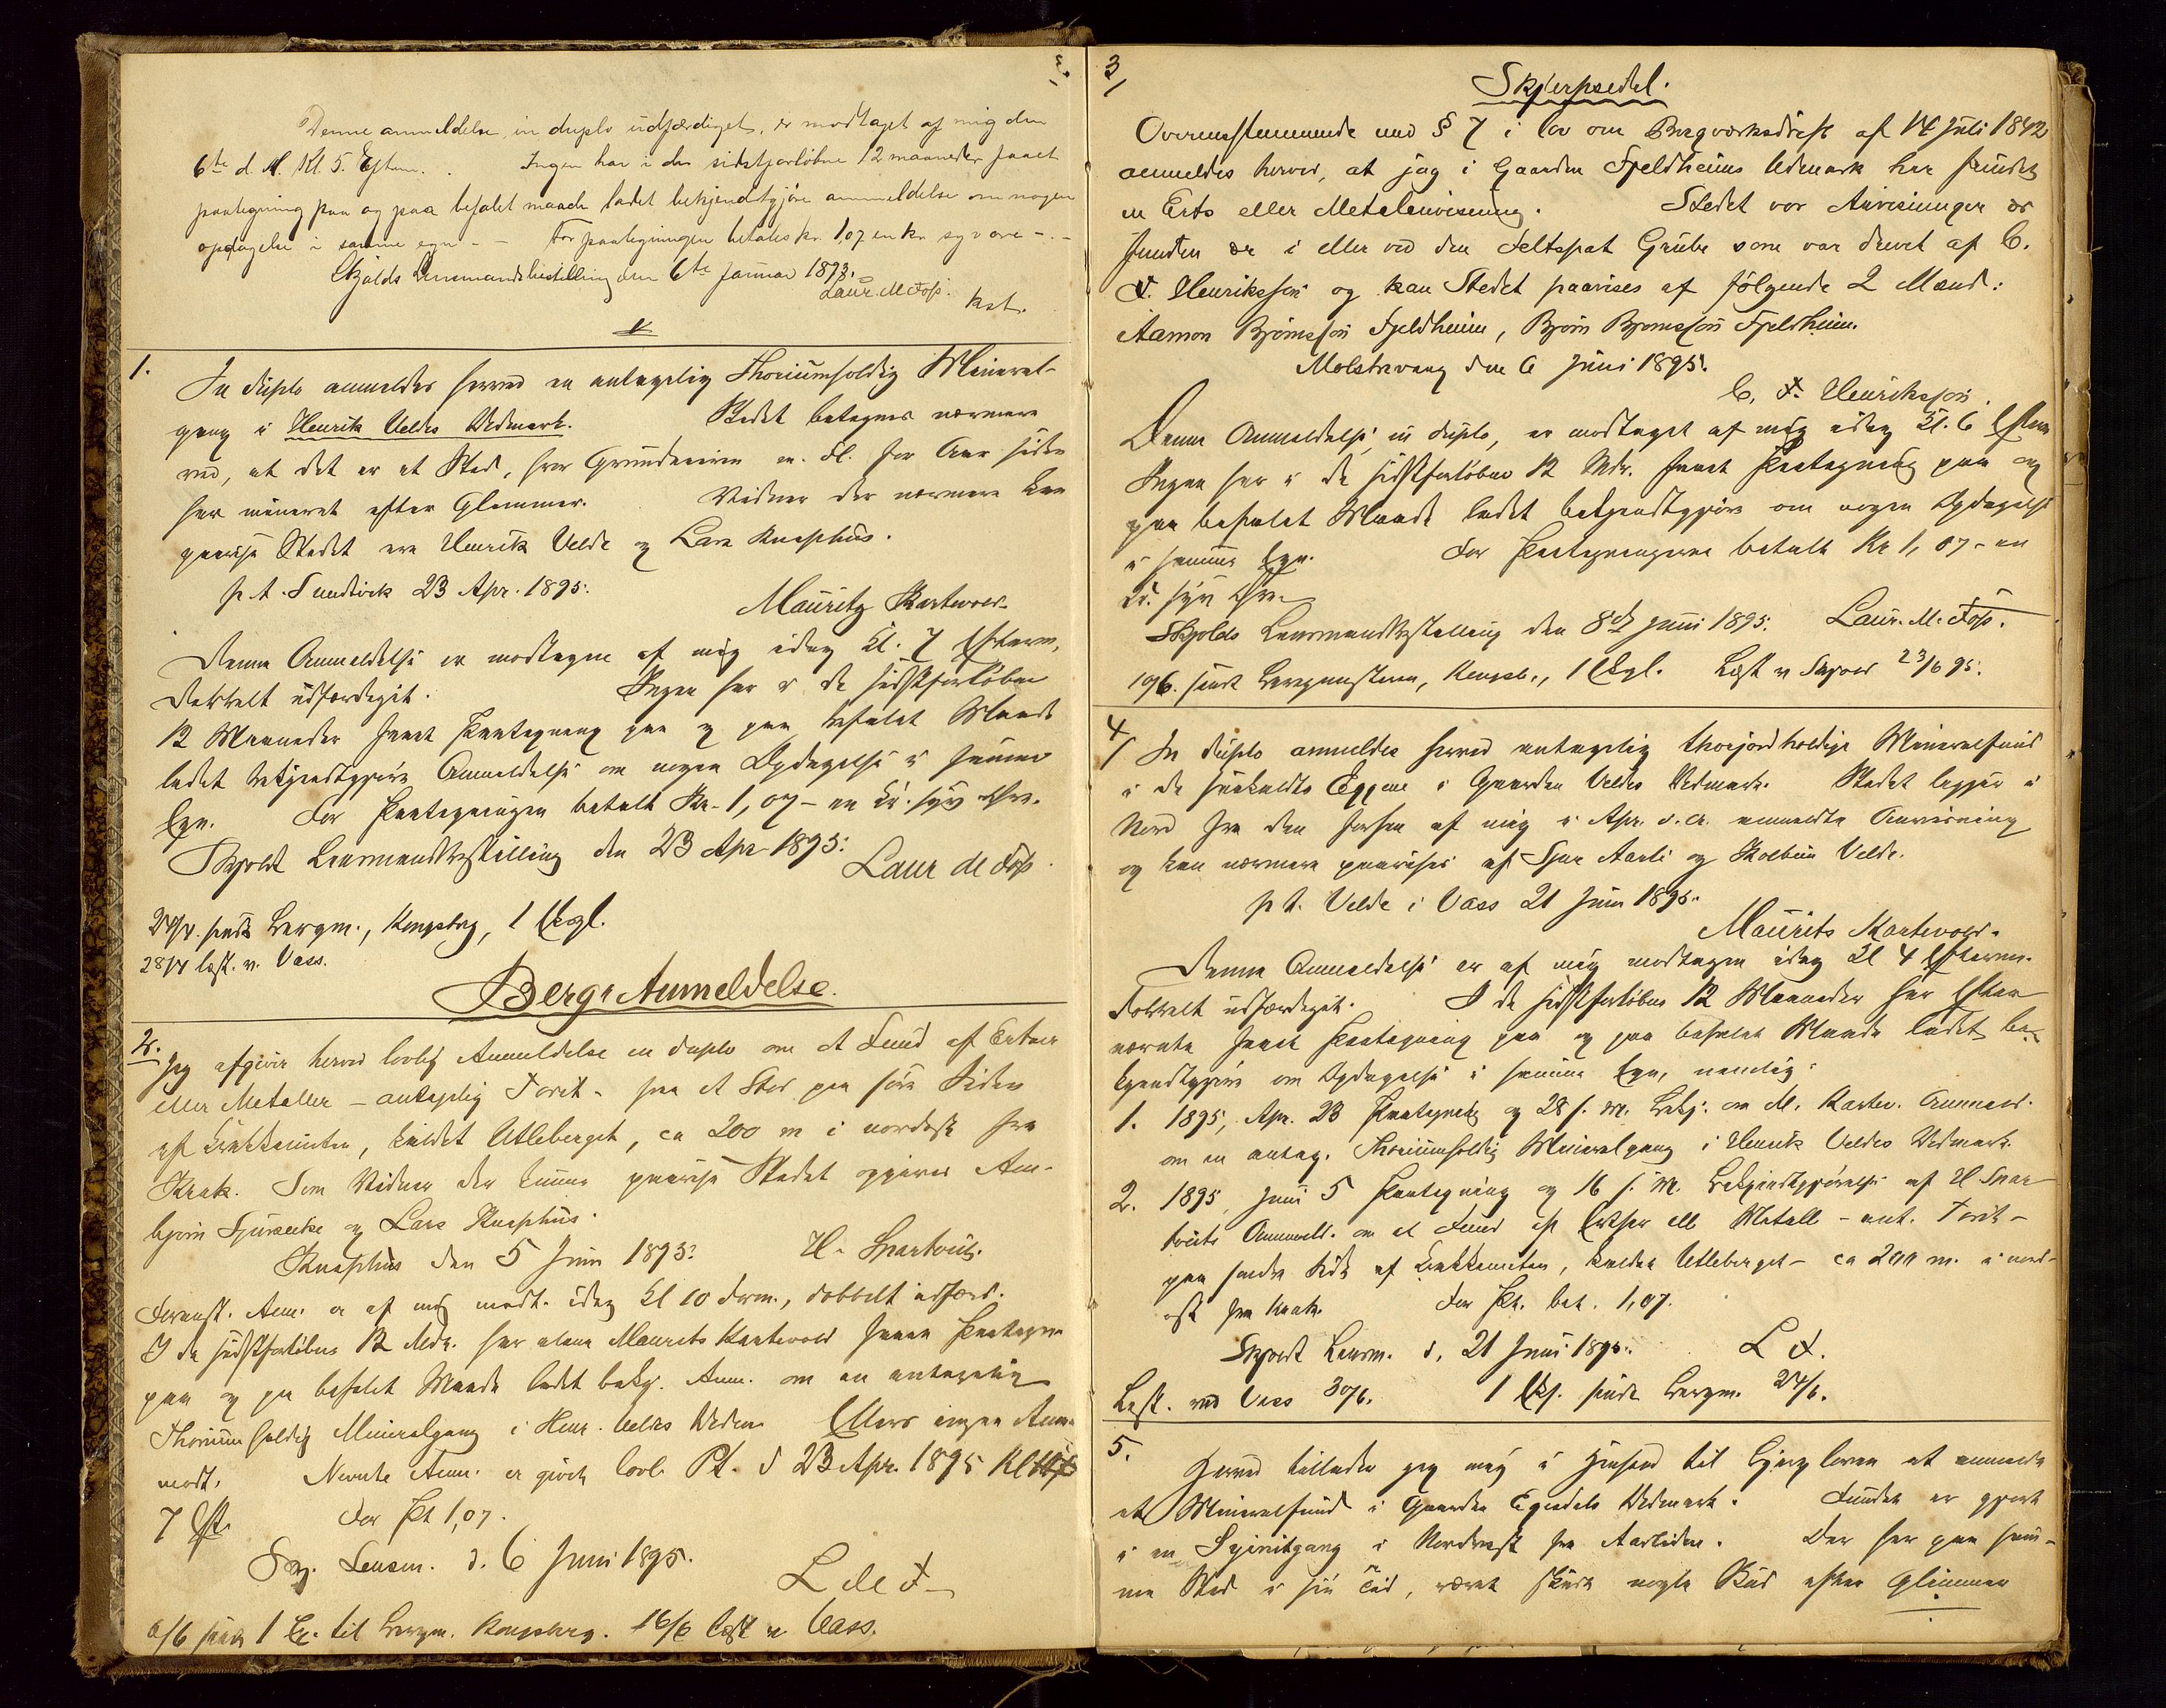 Denne anmeldelse in duplo udfærdiget, er modtaget af mig den
6te d. M. Kl 5. Eftm. . Ingen har i de sidstforløbne 12 maaneder faaet
paategning paa og paa befalet maade ladet bekjendtgjøre anmeldelse om nogen
opdagelse i samme egn - - For paategningen betales kr. 1,07 en kr syv øre -.-
Skjolds Lensmandsbestilling den 6te Januar 1893.
Laur. M Foss.
kst.
1.
In duplo anmeldes herved en antagelig Thoriumholdig Mineral-
gang i Henrik Veldes Udmark. Stedet betegnes nærmere
ved, at det er et Sted, hvor Grundeieren m. fl. for Aar siden
har mineret efter Glimmer. Vidner der nærmere kan
paavise Stedet ere Henrik Velde og Lars Knaphus.
p. t. Sandvik 23 Apr. 1895.
Mauritz Kartevold.
Denne Anmeldelse er modtagen af mig idag Kl. 7 Efterm,
dobbelt udfærdiget. Ingen har i de sidstforløbne
12 Maaneder faaet Paategning paa og paa befalet Maade
ladet bekjendtgjøre Anmeldelse om nogen Opdagelse i samme
Egn. For Paategningen betalt Kr. 1,07 - en kr. syv Øre.
Skjold Lensmandsbestilling den 23 Apr 1895.
Laur M Foss.
24/4. sendt Bergm., Kongsberg, 1 Expl.
28/4 læst. v. Vass.
Bergs Anmeldelse.
2.
Jeg afgiver herved lovlig Anmeldelse in duplo om et Fund af Ertser
eller Metaller - antagelig Torit - paa et Sted paa søre Siden
af Krakkenuten, kaldet Utleberget, ca 200 m i nordost fra
Krak. Som Vidner der kunne paavise Stedet opgives Am-
bjørn og Lars Knaphus.
Knaphus den 5 Juni 1895. H.
Foranst. Anm. er af mig modt. idag Kl 10 Form., dobbelt udfærd.
I de sidstforløbne 12 Mdr. har alene Maurits Kartevold faaet Paategn
paa og paa befalet Maade ladet bekj. Anm. om en antagelig
Thoriumholdig Mineralgang i Henr. Veldes Udm. Ellers ingen Anm.
modt. Nævnte Anm. er givet lovl. Pt. d 23 Apr. 1895 Kl
7 Eft. For Pt 1,07.
Skj. Lensm. d. 6 Juni 1895.
L M F
6/6 sendt 1 Ex. til Bergm. Kongsberg. 16/6 læst v Vass.
3
Skjerpsedel.
Overensstemmende med § 7 i lov om Bergværksdrift af 14 Juli 1842
anmeldes herved, at jeg i Gaarden Fjeldheims Udmark har fundet
en Erts eller Metalanvisning. Stedet vor Anvisningen er
funden er i eller ved den Feltspat Grube som var drevet af C.
F. Henriksson og kan Stedet paavises af følgende 2 Mænd:
Aamon Bjørnsson Fjeldheim, Bjørn Bjørnsson Fjeldheim.
den 6 Juni 1895.
C. F. Henriksson.
Denne Anmeldelse, in duplo, er modtaget af mig idag Kl. 6 Efterm
Ingen har i de sidstforløbne 12 Mdr. faaet Paategning paa og
paa befalet Maade ladet bekjendtgjøre om nogen Opdagelse
i samme Egn. For Paategningerne betalt Kr 1,07 - en
kr. syv Øre.
Skjolds Lensmandsbestilling den 8de Juni 1895. Laur. M. Foss.
10/6. sendt Bergmesteren, Kongsb., 1 Expl. Læst v Skjold 23/6 95.
4
In duplo anmeldes herved antagelig thorjordholdige Mineralfund
i de saakaldte Eggene i Gaarden Veldes Udmark. Stedet ligger i
Nord fra den forhen af mig i Apr. d. A. anmeldte Anvisning
og kan nærmere paavises af Sjur Aarli og Kolbein Velde.
p t. Velde i Vass 21 Juni 1895.
Maurits Kartevold.
Denne Anmeldelse er af mig modtagen idag Kl 4 Efterm.
dobbelt udfærdiget. I de sidstforløbne 12 Maaneder har Efter-
nævnte faaet Paategning paa og paa befalet Maade ladet be-
kjendtgjøre om Opdagelse i samme Egn, nemlig:
1. 1895, Apr. 23 Paategnet og 28 s. M. bekj. en M. Kartev. Anmeld.
om en antag. Thoriumholdig Mineralgang i Henrik Veldes Udmark.
2. 1895, Juni 5 Paategning og 16 s. M. Bekjendtgjørelse af H
Anmeld. om et Fund af Ertser ell Metall - ant. Torit -
paa søndre Side af Krakkenuten, kaldet Utleberget - ca 200 m. i nord-
ost fra Krak. For Pt. bet. 1,07.
Skjold Lensm. d. 21 Juni 1895. L F.
Læst. ved Vass 30/6. 1 Ex. sendt Bergm. 24/6.
5.
Herved tillader jeg mig i Henhold til Bergloven at anmelde
et Mineralfund i Gaarden Egedals Udmark. Fundet er gjort
i en Syenitgang i Nordvest fra Aarliden. Der har paa sam-
me Sted i sin Tid, været skudt nogle Skud efter Glimmer